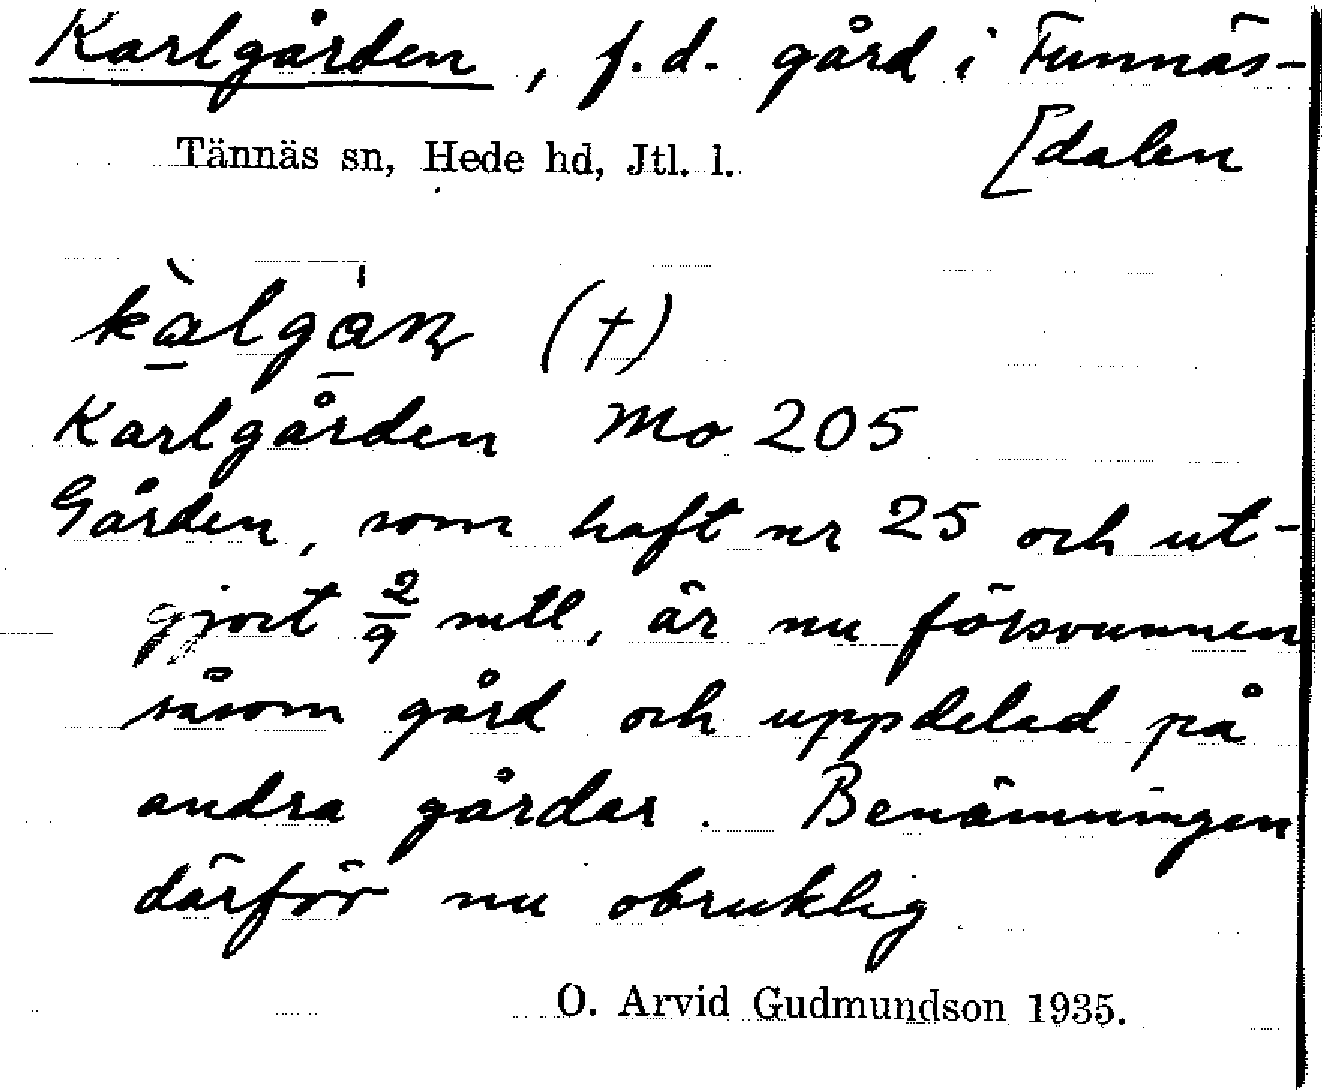 Karlgården, f.d. gård i Funnäs-
[dalen
Tännäs sn, Hede hd, Jtl. l.
(†)
Karlgården Mo 205
Gården, som haft nr 25 och ut-
gjort 2/9 mtl, är nu försvunnen
såsom gård och uppdelad på
andra gårdar. Benämningen
därför nu obruklig
O. Arvid Gudmundson 1935.